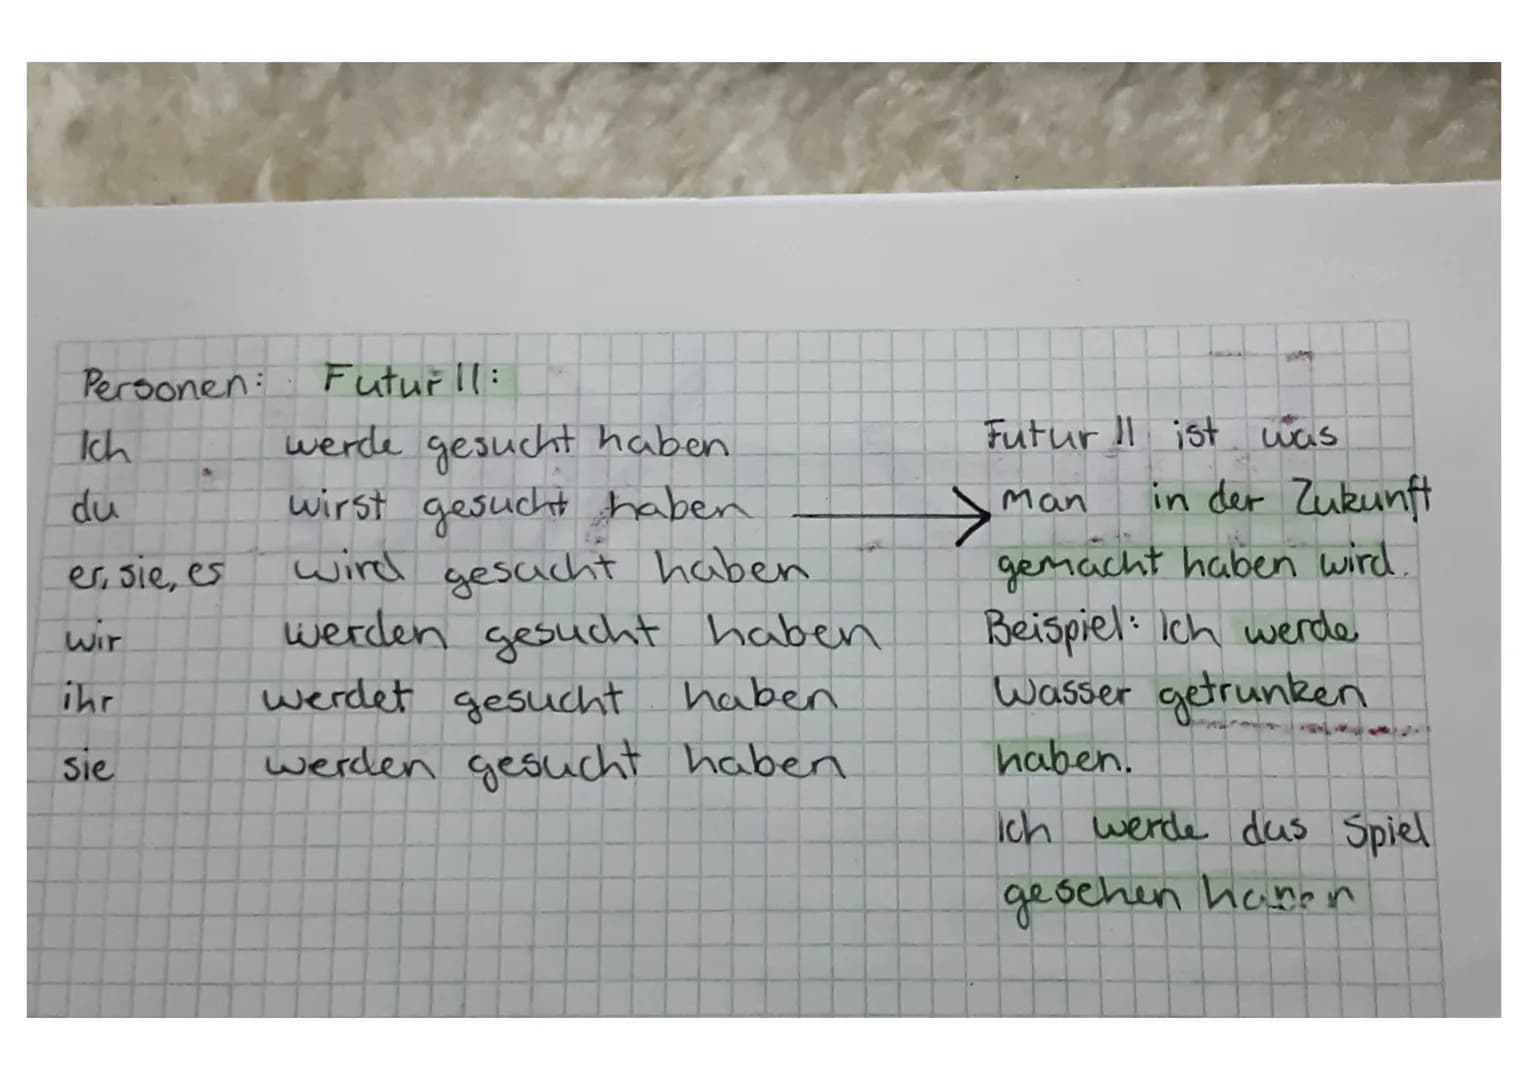 Personen: Futur II:
Ich werde gesucht haben
du wirst gesucht haben
er, sie, es wird gesucht haben
wir werden gesucht haben
ihr werdet gesucht haben
sie werden gesucht haben
Futur II ist was
man in der Zukunft
gemacht haben wird.
Beispiel: Ich werde
Wasser getrunken
haben.
Ich werde das Spiel
gesehen haben